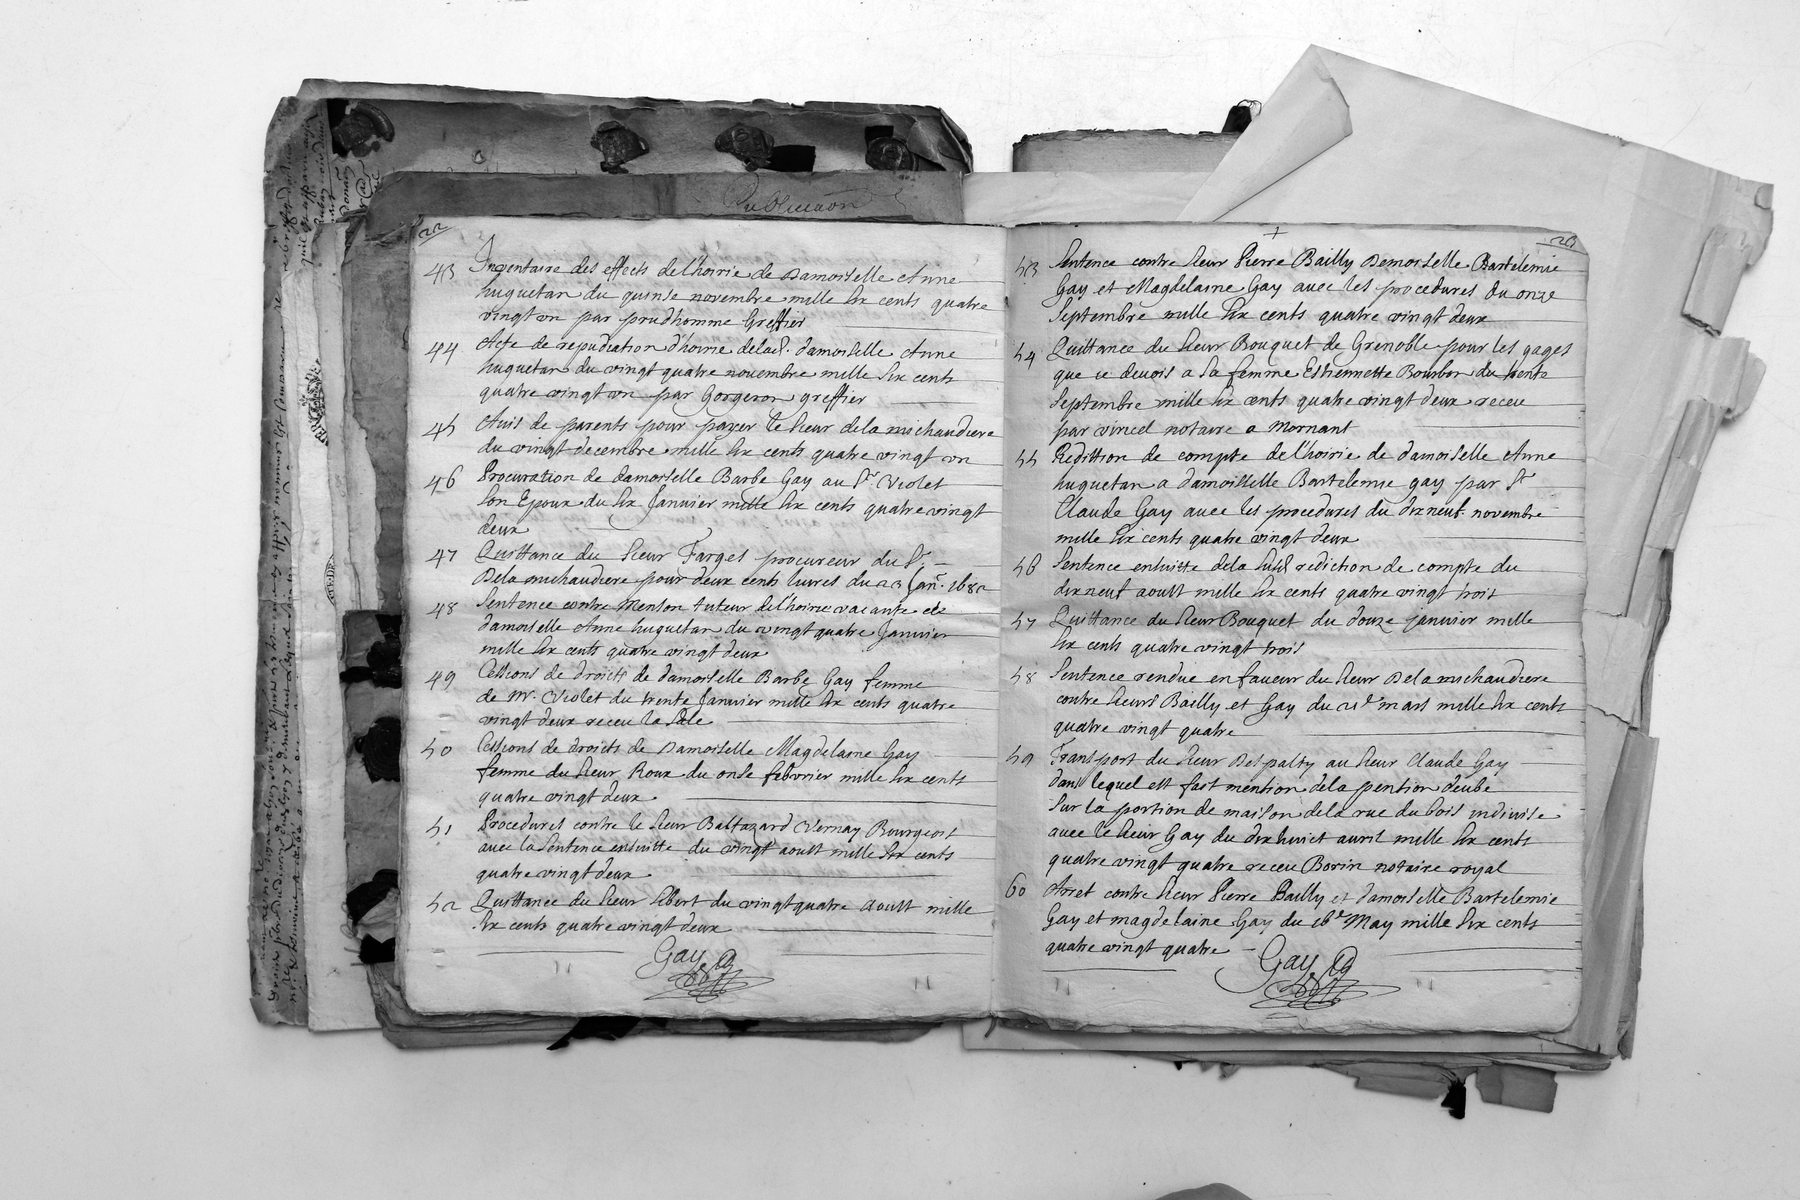 Publication
22
43 Inventaire des effects de l'hoirie de Damoiselle Anne
huguetan du quinse novembre mille six cents quatre
vingt un par prudhomme Greffier
44 Acte de repudiation d'hoirie delad. damoiselle Anne
huguetan du vingt quatre novembre mille six cents
quatre vingt un par Gorgeron greffier
45 Avis de parents pour payer le sieur dela michaudiere
du vingt decembre mille six cents quatre vingt un
46 Procuration de damoiselle Barbe Gay au Sr. Violet
son Epoux du six Janvier mille six cents quatre vingt
deux
47 Quittance du sieur Farges procureur du Sr.
Dela michaudiere pour deux cents livres du 23 Janr. 1682
48 Sentence contre Menson tuteur de l'hoirie vacante de
damoiselle Anne huguetan du vingt quatre Janvier
mille six cents quatre vingt deux
49 Cessions de droicts de damoiselle Barbe Gay femme
de Mr. Violet du trente Janvier mille six cents quatre
vingt deux receu la Sale
50 Cessions de droicts de Damoiselle Magdelaine Gay
femme du sieur Roux du onse febvrier mille six cents
quatre vingt deux.
51 Procedures contre le sieur Baltazard Vernay Bourgeois
avec la sentence ensuitte du vingt aoust mille six cents
quatre vingt deux
52 Quittance du sieur Libert du vingt quatre Aoust mille
six cents quatre vingt deux
Gay
53 Sentence contre sieur Pierre Bailly Demoiselle Bartelemie
Gay et Magdelaine Gay avec les procedures du onze
Septembre mille six cents quatre vingt deux
54 Quittance du sieur Bouquet de Grenoble pour les gages
que je devois a sa femme Estiennette Bourbon du trente
Septembre mille six cents quatre vingt deux receue
par vincel notaire a Mornant
55 Reddition de compte de l'hoirie de damoiselle Anne
huguetan a damoiselle Bartelemie gay par Sr
Claude Gay avec les procedures du dix neuf novembre
mille six cents quatre vingt deux
56 Sentence ensuitte dela susd. rediction de compte du
dix neuf aoust mille six cents quatre vingt trois
57 Quittance du sieur Bouquet du douze janvier mille
six cents quatre vingt trois
58 Sentence rendue en faveur du sieur Dela michaudiere
contre sieurs Bailly et Gay du mars mille six cents
quatre vingt quatre
59 Transport du sieur Despalty au sieur Claude Gay
dans lequel est fait mention dela pention deube
sur la portion de maison dela rue du bois indivise
avec le sieur Gay du dix huict avril mille six cents
quatre vingt quatre receu Borin notaire royal
60 Arret contre sieur Pierre Bailly et damoiselle Bartelemie
Gay et magdelaine Gay du 16e May mille six cents
quatre vingt quatre
Gay